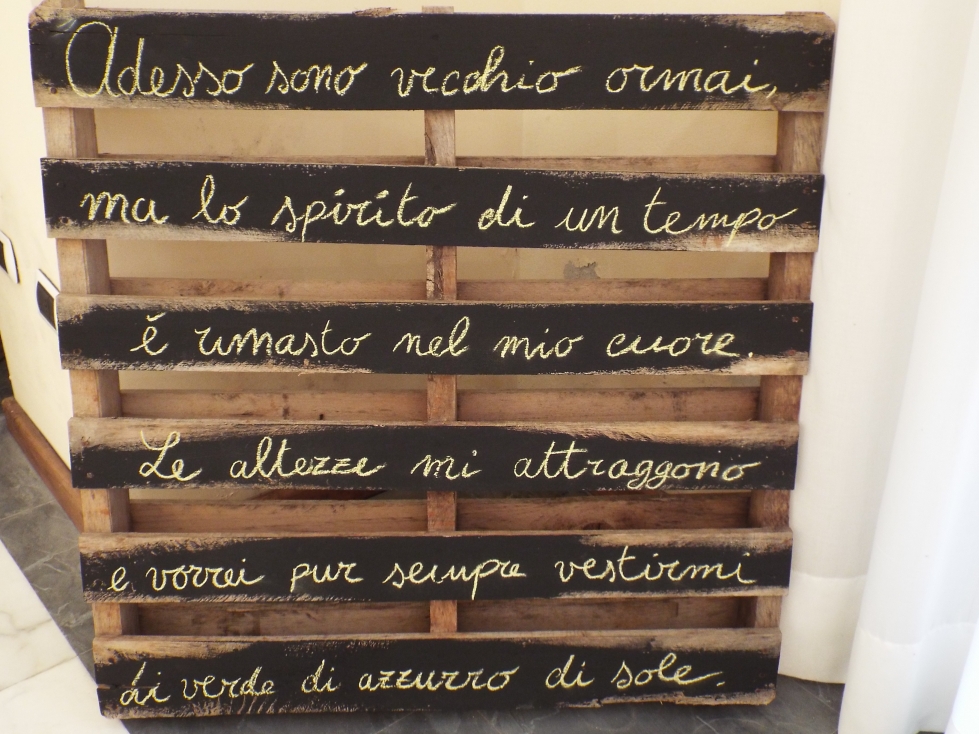 Adesso sono vecchio ormai,
ma lo spirito di un tempo
è rimasto nel mio cuore.
Le altezze mi attraggono
e vorrei pur sempre vestirmi
di verde di azzurro di sole.